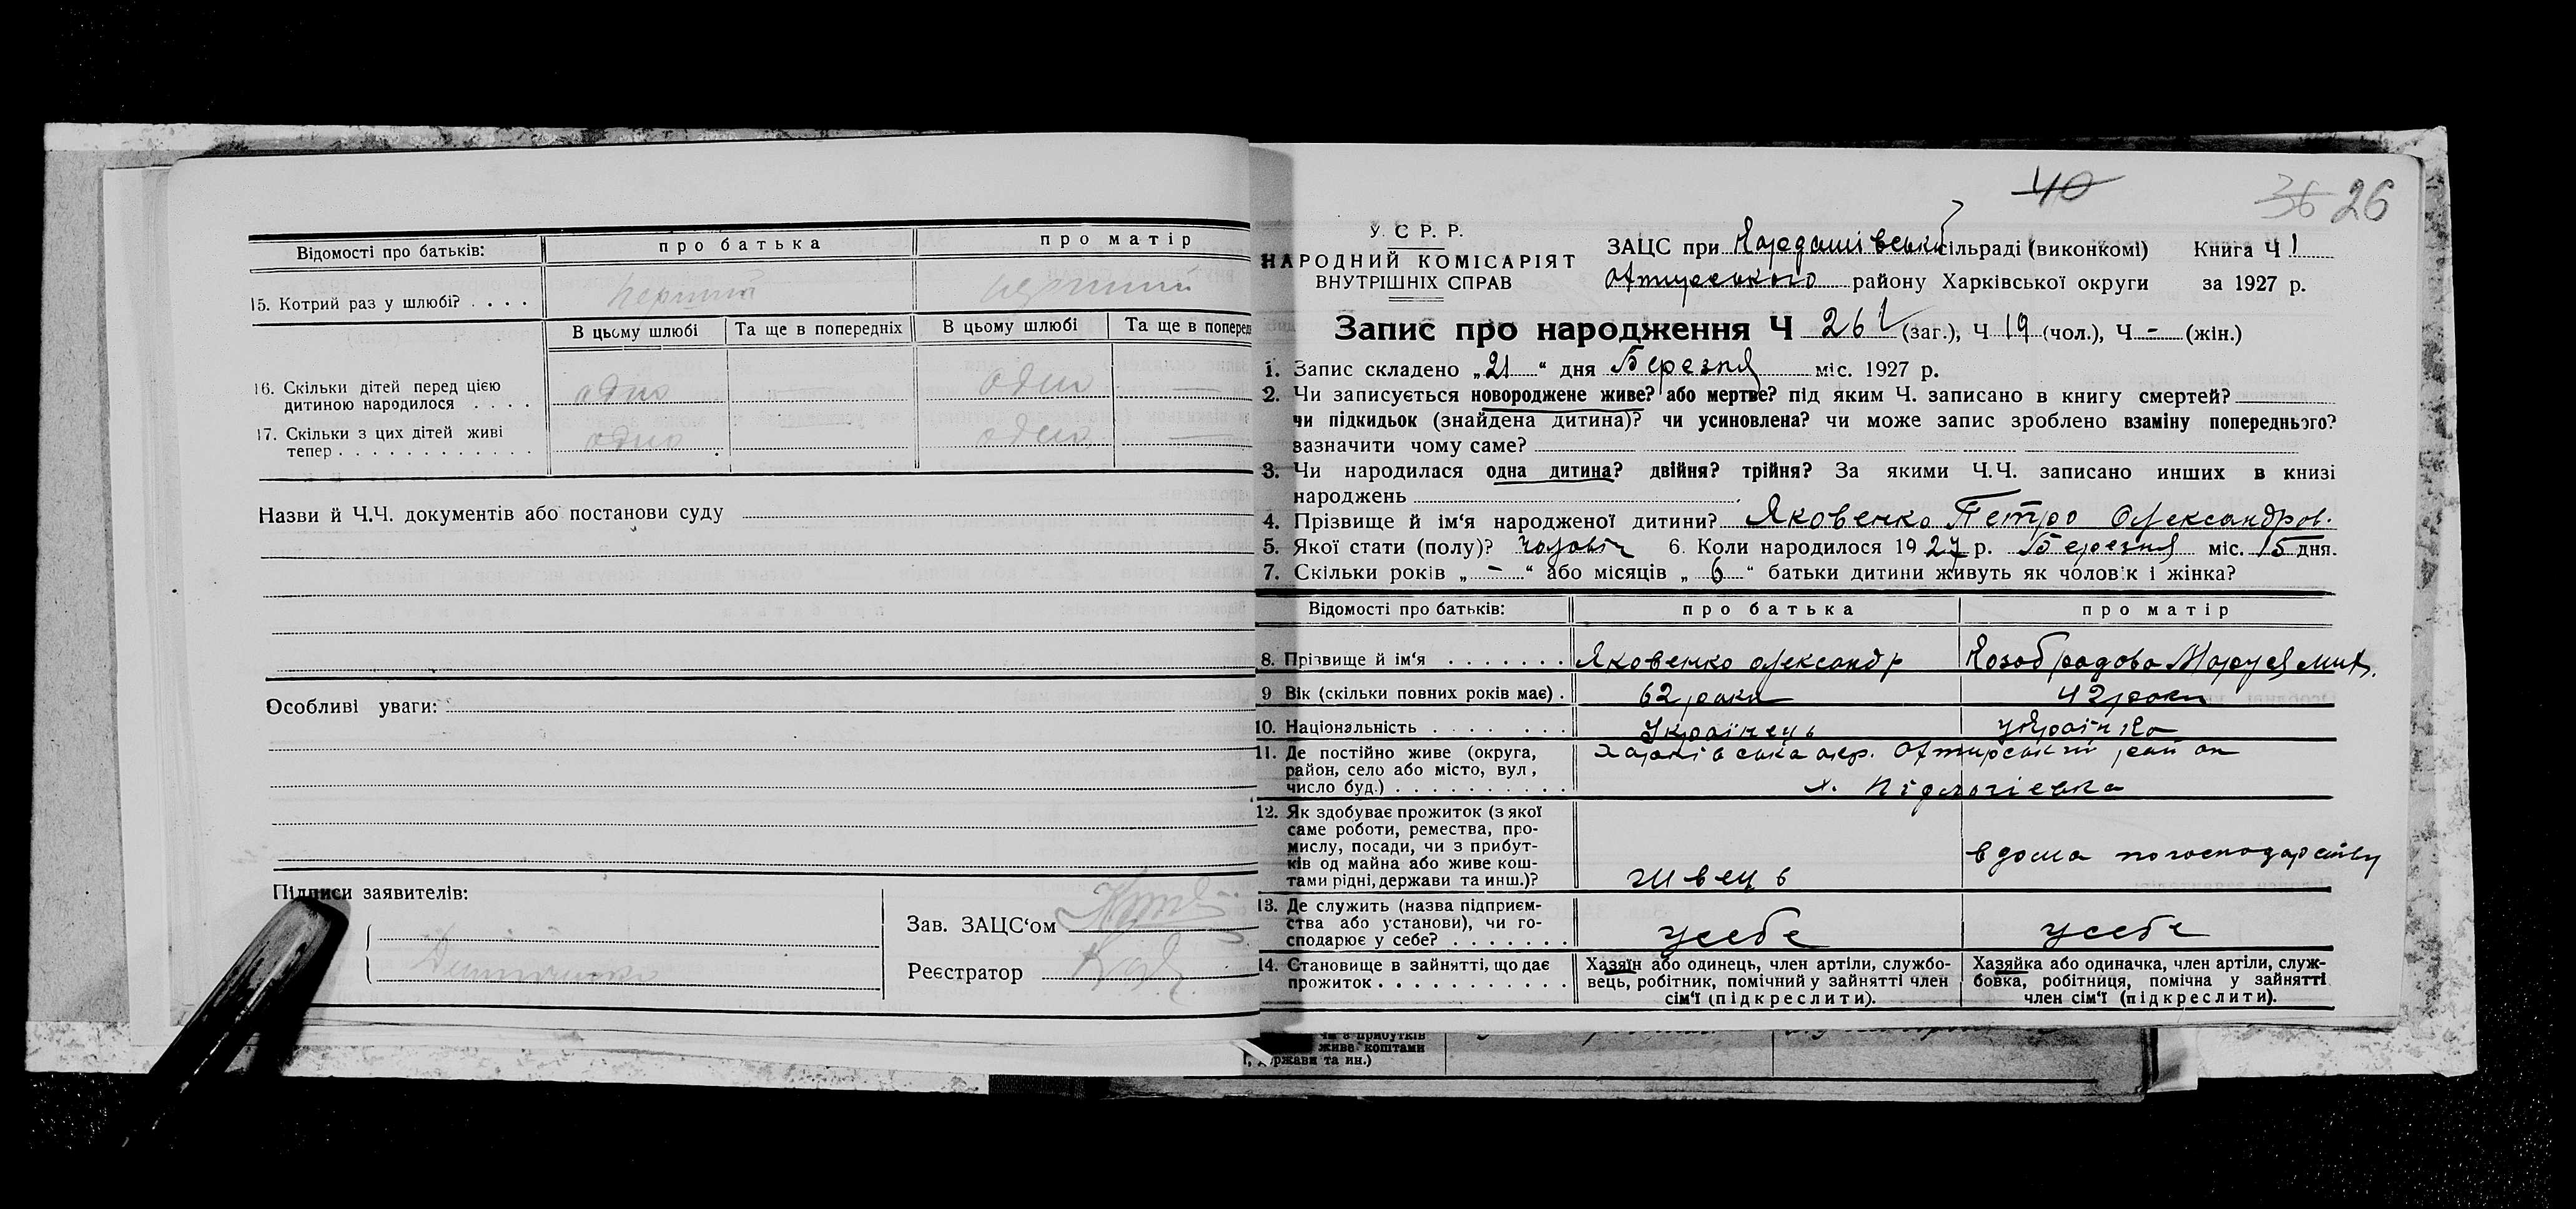 Відомості про батьків:
про батька
про матір
15. Котрий раз у шлюбі? . . . .
перший
перший
В цьому шлюбі
Та ще в попередніх
В цьому шлюбі
Та ще в поперед
16. Скільки дітей перед цією
дитиною народилося . . . .
одно
одно
—
17. Скільки з цих дітей живі
тепер . . . . . . . . . . . .
одно
одно
—
Назви й Ч.Ч. документів або постанови суду
Особливі уваги:
Підписи заявителів:
Зав. ЗАЦС‘ом
Реєстратор
40
36 26
У. С Р. Р.
НАРОДНИЙ КОМІСАРІЯТ
ВНУТРІШНІХ СПРАВ
ЗАЦС при сільраді (виконкомі) Книга Ч 1
району Харківської округи за 1927 р.
Запис про народження Ч 26 (заг.), Ч 19 (чол.), Ч - (жін.)
1. Запис складено „21“ дня Березня міс. 1927 р.
2. Чи записується новороджене живе? або мертве? під яким Ч. записано в книгу смертей?
чи підкидьок (знайдена дитина)? чи усиновлена? чи може запис зроблено взаміну попереднього?
зазначити чому саме?
3. Чи народилася одна дитина? двійня? трійня? За якими Ч.Ч. записано инших в книзі
народжень
4. Прізвище й ім‘я народженої дитини? Яковенко Петро Олександров.
5. Якої стати (полу)? чоловіч 6. Коли народилося 1927 р. Березня міс. 15 дня.
7. Скільки років „ - “ або місяців „ 6 “ батьки дитини живуть як чоловік і жінка?
Відомості про батьків:
про батька
про матір
8. Прізвище й ім‘я . . . . . . .
Яковенко Олександр
Маруся
9 Вік (скільки повних років має) .
62 роки
42 роки
10. Національність . . . . . . .
Українець
Українка
11. Де постійно живе (округа,
район, село або місто, вул,
число буд.) . . . . . . . . . .
Харківська окр. район
х.
12. Як здобуває прожиток (з якої
саме роботи, ремества, про-
мислу, посади, чи з прибут-
ків од майна або живе кош-
тами рідні, держави та инш.)?
швець
вдома по господарству
13. Де служить (назва підприєм-
ства або установи), чи го-
сподарює у себе? . . . . . . .
у себе
у себе
14. Становище в зайнятті, що дає
прожиток . . . . . . . . . . .
Хазяїн або одинець, член артіли, службо-
вець, робітник, помічний у зайнятті член
сім‘ї (підкреслити).
Хазяйка або одиначка, член артіли, служ-
бовка, робітниця, помічна у зайнятті
член сім‘ї (підкреслити).
чи з прибутків
жива коштами
держави та ин.)